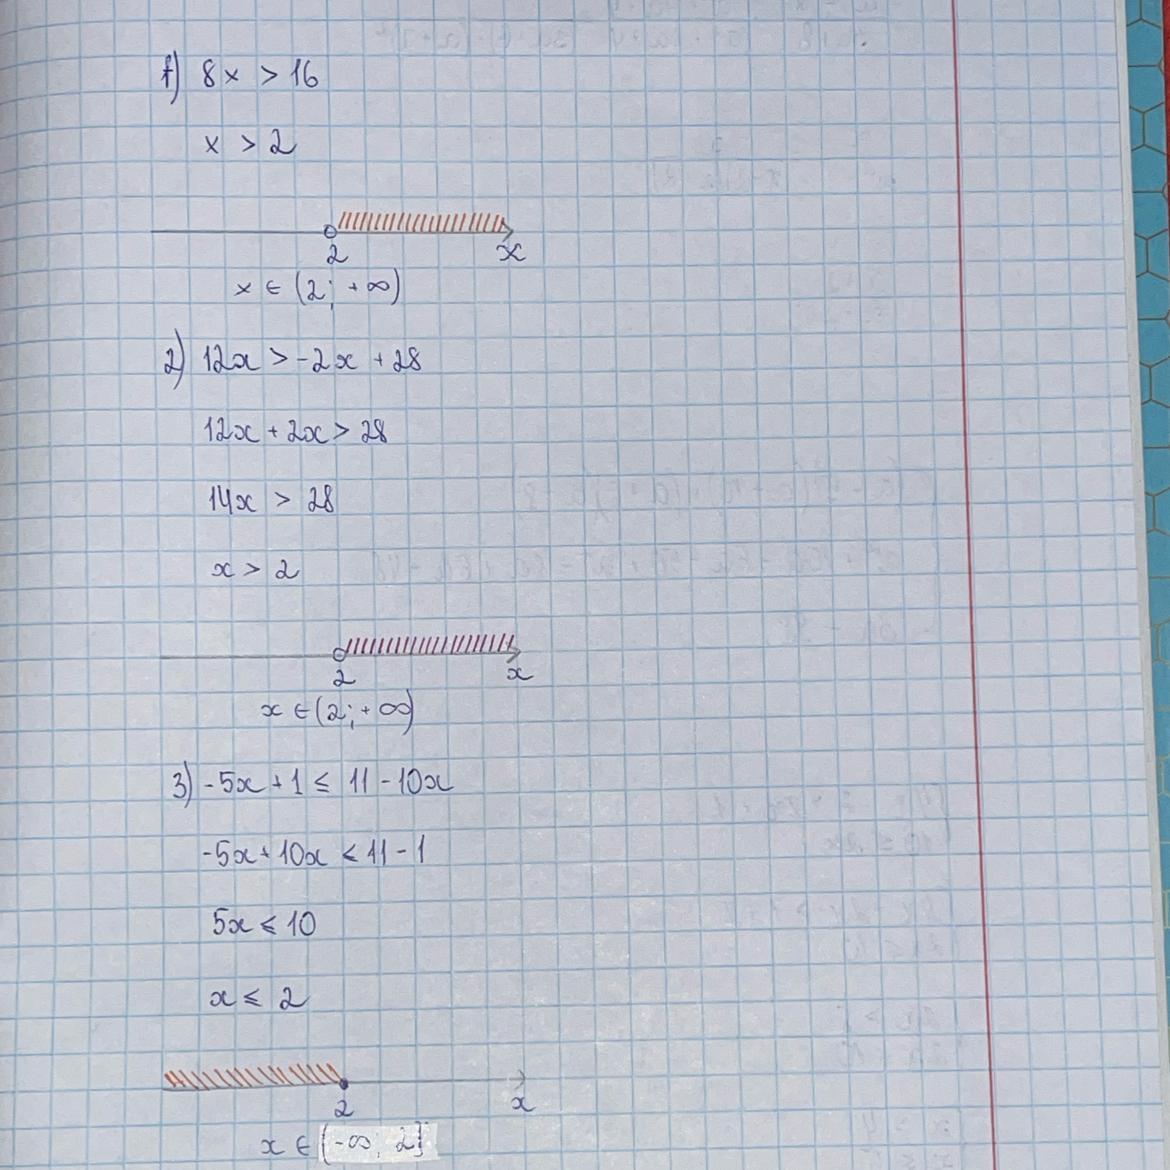 1) 8x > 16
x > 2
2 x
x ∈ (2; +∞)
2) 12x > -2x + 28
12x + 2x > 28
14x > 28
x > 2
2 x
x ∈ (2; +∞)
3) -5x + 1 ≤ 11 - 10x
-5x + 10x ≤ 11 - 1
5x ≤ 10
x ≤ 2
2 x
x ∈ (-∞; 2]